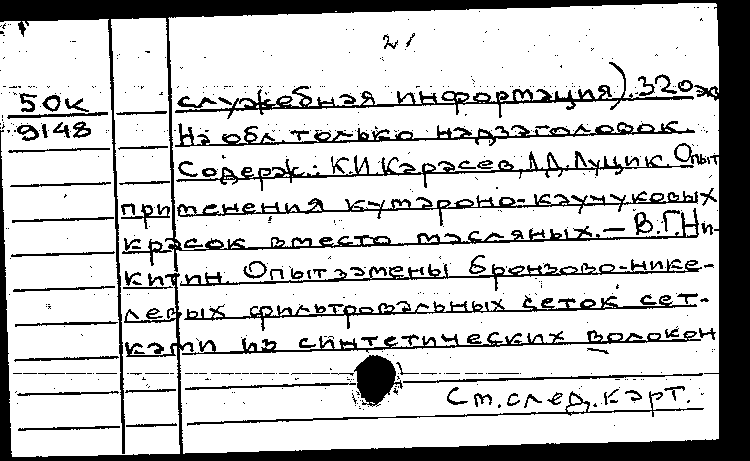 2/
50к служебная информация). 320 экз
9148 На обл. только надзаголовок.
Содерж.: К.И. Карасев, Л.Д. Луцик. Опыт
применения кумароно-каучуковых
красок вместо масляных. – В.Г. Ни-
китин. Опыт замены бронзово-нике-
левых фильтровальных сеток сет-
ками из синтетических волокон
См. след. карт.